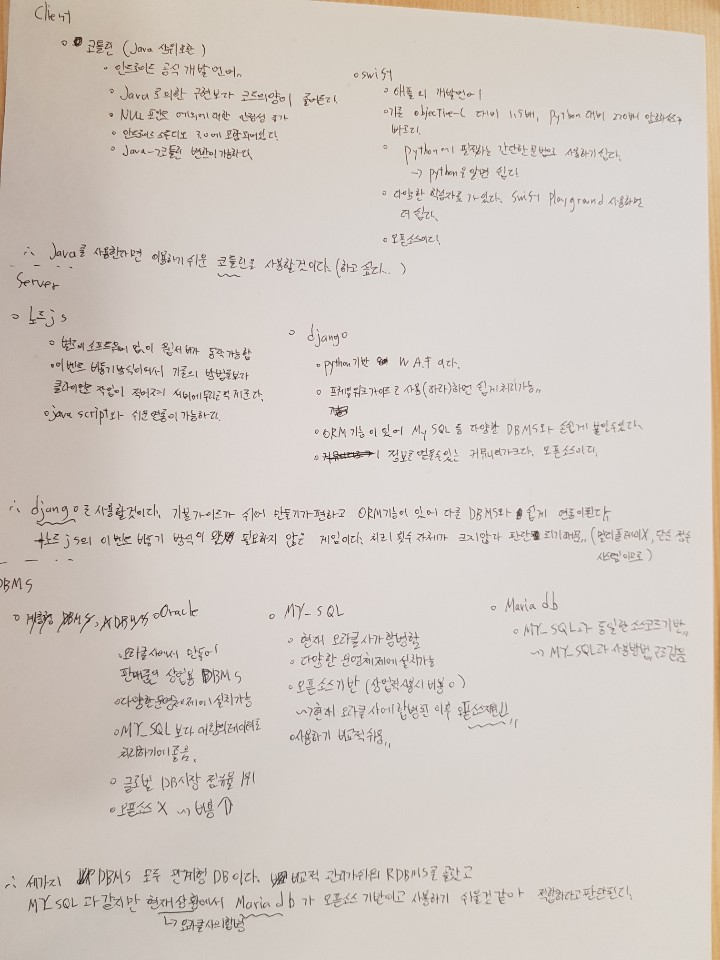 Client
○ 코틀린 (Java 상위호환)
○ 안드로이드 공식 개발 언어..
○ Java로의한 구현보다 코드의양이 줄어든다.
○ NULL 포인트 예외에 대한 안정성 증가
○ 안드로이드 스튜디오 3.0에 포함되어있다.
○ Java→코틀린 변환이 가능하다.
○ swift
○ 애플의 개발언어
○ 기존 objective-C 대비 1.5배, Python 대비 220배 앞 퍼포먼스가
빠르다.
○ python에 필적하는 간단한 문법으로 사용하기 쉽다.
→ python을 알면 쉽다
○ 다양한 학습자료가 있다. Swift Playground 사용하면
더 쉽다.
○ 오픈소스이다.
∴ Java를 사용한다면 이용하기 쉬운 코틀린을 사용할것이다. (하고 싶다...)
Server
○ 노드js
○ 별도의 소프트웨어 없이 웹서버가 동작 가능함
○ 이벤트 비동기 방식이여서 기존의 방법들보다
클라이언트 작업이 적어져 서버에 무리를 덜 지운다.
○ java script와 쉬운 연동이 가능하다.
○ django
○ python기반 W.A.F 이다.
○ 프레임워크가이드로 사용(하라)하면 쉽게 처리가능..
○ ORM 기능이 있어 My SQL 등 다양한 DBMS와 손쉽게 붙일수있다.
○ 정보를 얻을수있는 커뮤니티가크다. 오픈소스이다.
∴ django로 사용할것이다. 기본가이드가 쉬워 만들기가 편하고 ORM기능이 있어 다른 DBMS와 쉽게 연동이된다,
노드js의 이벤트 비동기 방식이 필요하지 않은 게임이다. 처리 횟수 자체가 크지않다 판단되기때문.. (멀티플레이X, 단순 점수
시스템이므로)
DBMS
○ Oracle
○ 오라클사에서 만들어
판매중인 상업용 DBMS
○ 다양한 운영체제에 설치가능
○ MY_SQL 보다 대량의 데이터를
처리하기에 좋음..
○ 글로벌 DB시장 점유율 1위
○ 오픈소스 X ↝ 비용 ↑
○ MY_SQL
○ 현재 오라클사가 합병함
○ 다양한 운영체제에 설치가능
○ 오픈소스기반 (상업적 사용시 비용 ○)
↝ 현재 오라클사에 합병된 이후 오픈소스 제한!!
○ 사용하기 비교적 쉬움..
○ Maria db
○ MY_SQL과 동일한 소스코드기반..
↝ MY_SQL과 사용방법, 구조같음
∴ 세가지 DBMS 모두 관계형 DB이다. 비교적 관리가 쉬워 RDBMS를 골랐고
MY_SQL과 같지만 현재 상황에서 Maria db가 오픈소스 기반이고 사용하기 쉬울것 같아 적합하다고 판단된다.
↳ 오라클사의 합병